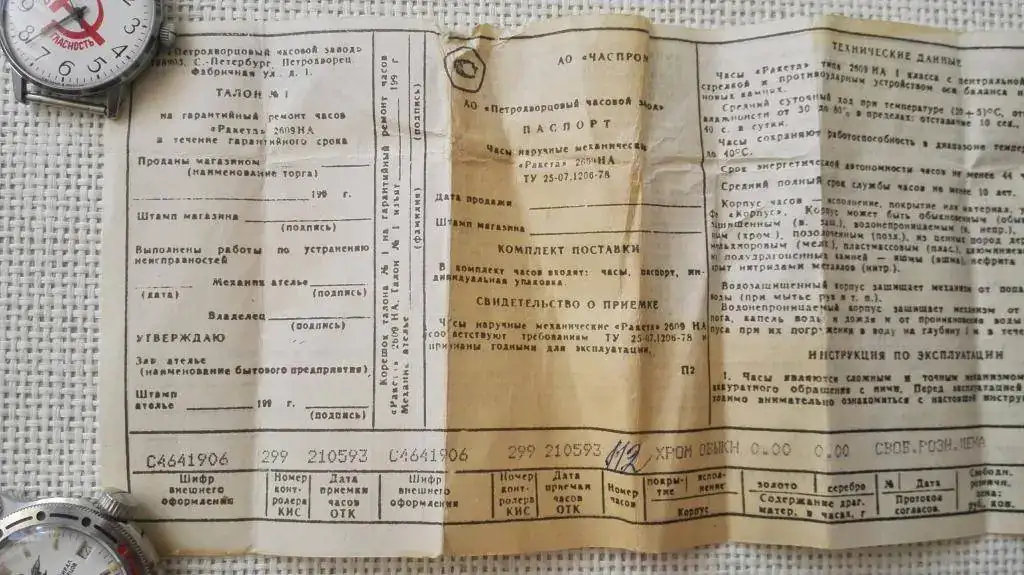 7 6 5
ГЛАСНОСТЬ
«Петродворцовый часовой завод»
С.-Петербург, Петродворец
Фабричная ул. д. 1.
ТАЛОН № 1
на гарантийный ремонт часов
«Ракета» 2609НА
в течение гарантийного срока
Проданы магазином
(наименование торга)
199 г.
Штамп магазина
(подпись)
Выполнены работы по устранению
неисправностей
Механик ателье
(дата) (подпись)
Владелец
(подпись)
УТВЕРЖДАЮ
Зав. ателье
(наименование бытового предприятия)
Штамп
ателье 199 г.
(подпись)
Корешок талона № 1 на гарантийный ремонт часов
«Ракета» 2609 НА. Талон № 1 изъят 199 г
Механик ателье
(фамилия) (подпись)
АО «ЧАСПРОМ
АО «Петродворцовый часовой завод»
ПАСПОРТ
Часы наручные механические
«Ракета» 2609НА
ТУ 25-07.1206-78
Дата продажи
Штамп магазина
КОМПЛЕКТ ПОСТАВКИ
В комплект часов входят: часы, паспорт, ин-
дивидуальная упаковка.
СВИДЕТЕЛЬСТВО О ПРИЕМКЕ
Часы наручные механические «Ракета» 2609 НА
соответствуют требованиям ТУ 25-07.1206-78 и
признаны годными для эксплуатации.
П2
ТЕХНИЧЕСКИЕ ДАННЫЕ
Часы «Ракета» типа 2609 НА 1 класса с центральной
стрелкой и противоударным устройством оси баланса
новых камнях.
Средний суточный ход при температуре (20±5)°С,
влажности от 30 до 80% в пределах: отставание 10 сек.,
40 с. в сутки.
Часы сохраняют работоспособность в диапазоне
до 40°С.
Срок энергетической автономности часов не менее 44
Средний полный срок службы часов не менее 10 лет.
Корпус часов — исполнение, покрытие или материал,
«Корпус». Корпус может быть обыкновенным
защищенным (в. защ.), водонепроницаемым (в. непр.),
ным (хром.), позолоченным (позл.), из ценных пород
мельхиоровым (мел.), пластмассовым (плас.),
полудрагоценных камней — яшмы (яшма), нефрита
крыт нитридами металлов (нитр.)
Водозащищенный корпус защищает механизм от
воды (при мытье рук и т. п.).
Водонепроницаемый корпус защищает механизм от
пота, капель воды и дождя и от проникновения воды
пуса при их погружении в воду на глубину 1 м в
ИНСТРУКЦИЯ ПО ЭКСПЛУАТАЦИИ
1. Часы являются сложным и точным механизмом
аккуратного обращения с ними. Перед эксплуатацией
ходимо внимательно ознакомиться с настоящей
С4641906 299 210593 С4641906 299 210593 112 ХРОМ ОБЫКН 0.00 0.00 СВОБ.РОЗН.ЦЕНА
Шифр внешнего оформления
Номер конт- ролера КИС
Дата приемки часов ОТК
Шифр внешнего оформления
Номер конт- ролера КИС
Дата приемки часов ОТК
Номер часов
покры- тие
испол- нение
Корпус
золото серебро
Содержание драг. матер. в часах, г
№ Дата
Протокол согласов.
Свободн. розничн. цена: руб. коп.